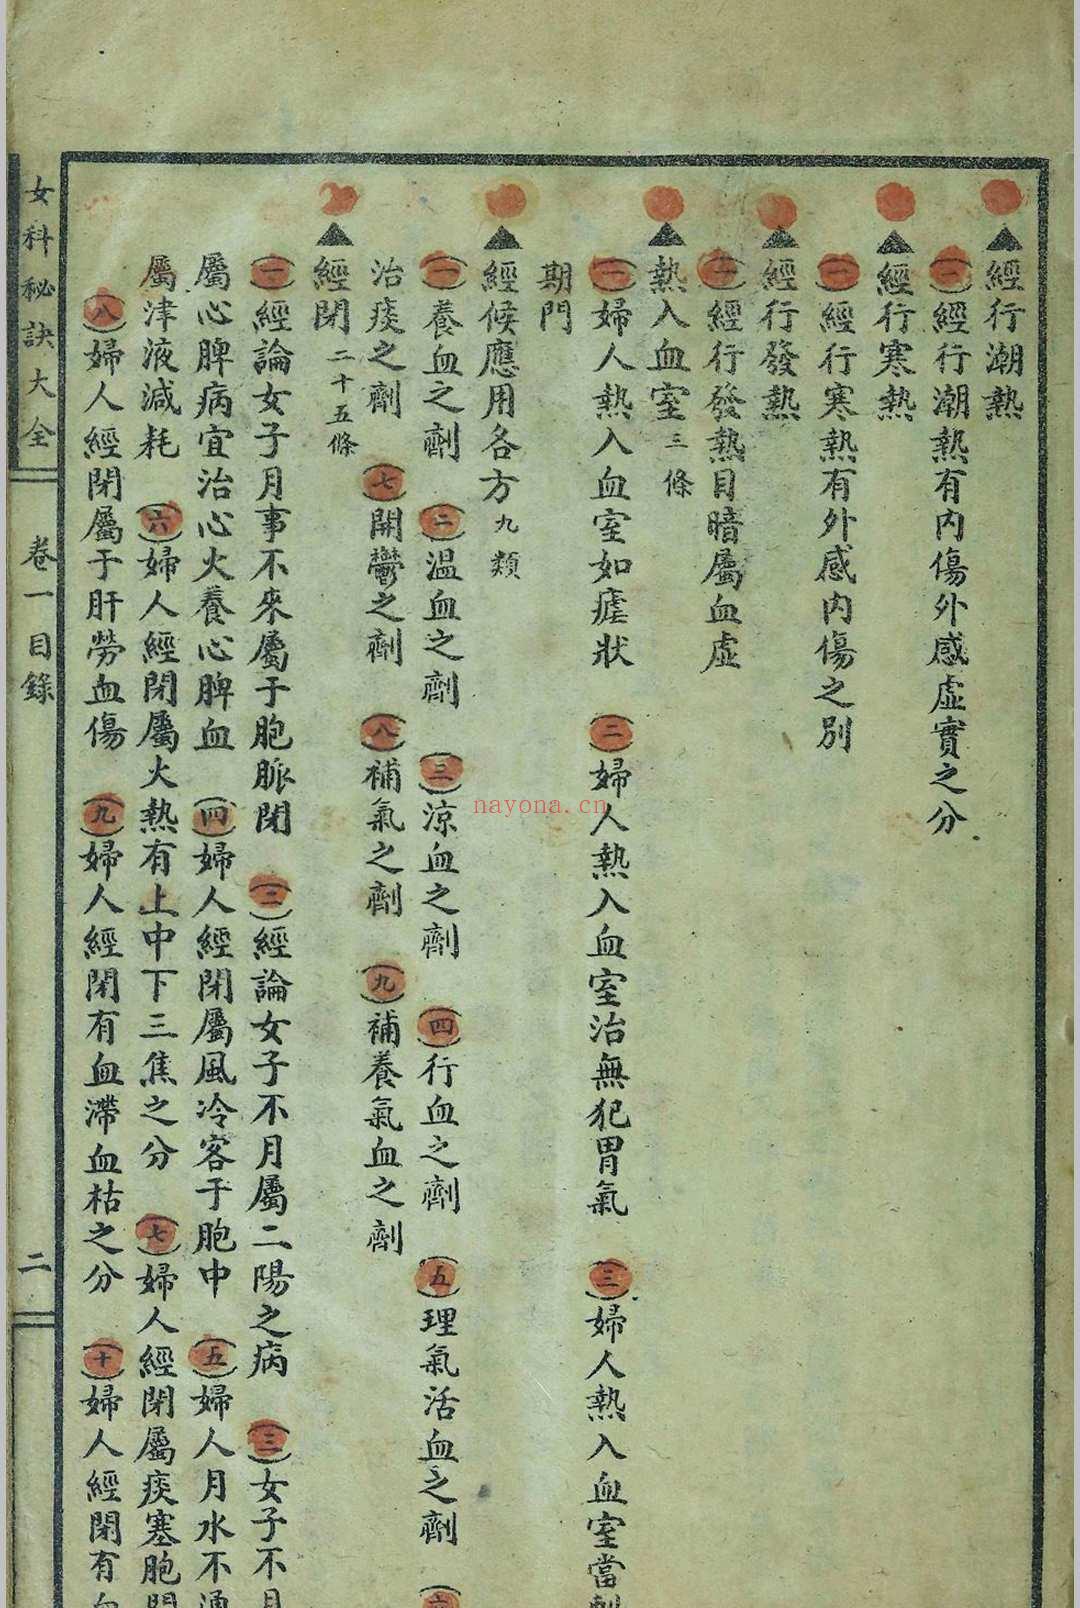 經行潮熱
(一)經行潮熱有內傷外感虛實之分
經行寒熱
(一)經行寒熱有外感內傷之別
經行發熱
(一)經行發熱目暗屬血虛
熱入血室 三條
(一)婦人熱入血室如瘧狀 (二)婦人熱入血室治無犯胃氣 (三)婦人熱入血室當刺
期門
經候應用各方 九類
(一)養血之劑 (二)溫血之劑 (三)涼血之劑 (四)行血之劑 (五)理氣活血之劑 (六
治痰之劑 (七)開鬱之劑 (八)補氣之劑 (九)補養氣血之劑
經閉 二十五條
(一)經論女子月事不來屬于胞脈閉 (二)經論女子不月屬二陽之病 (三)女子不月
屬心脾病宜治心火養心脾血 (四)婦人經閉屬風冷客于胞中 (五)婦人月水不通
屬津液減耗 (六)婦人經閉屬火熱有上中下三焦之分 (七)婦人經閉屬痰塞胞門
(八)婦人經閉屬于肝勞血傷 (九)婦人經閉有血滯血枯之分 (十)婦人經閉有血
女科秘訣大全 卷一目錄 二
nayona.cn